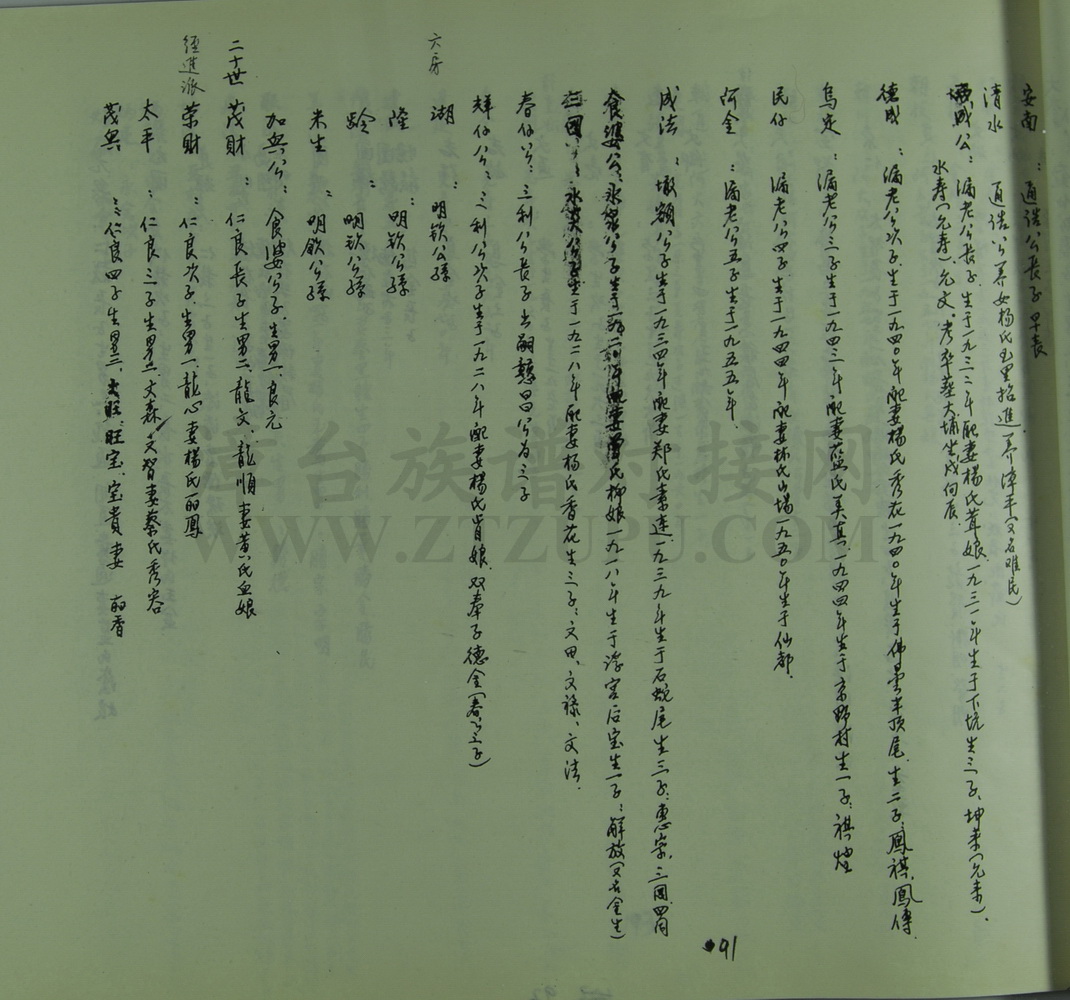 安南：通诰公長子早喪
清水 通诰公养女杨氏玉里招進养漳平(又名难民)
城公：漏老公長子.生于一九三二年配妻楊氏茸娘.一九三一年生于下坑生三子、坤来(允来)、
水寿(允寿)允文.考卒葬大埔坐戌向辰
德成：漏老公次子.生于一九四〇年配妻楊氏秀花一九四〇年生于佛曇半顶尾.生二子：鳳祺.鳳傳
烏定：漏老公三子生于一九四三年配妻蓝氏美真.一九四四年生于京野村生一子：祺煌
民仔 漏老公四子.生于一九四四年配妻林氏 一九五〇年生于仙都.
阿金：漏老公五子生于一九五五年.
成法：墩额公子生于一九三四年配妻郑氏素连.一九三九年生于石 尾生三子：惠宗.三國.四同
食婆公：永 公子生于一九 年配妻曾氏柳娘一九一八年生于浮宫后宝生一子：解放(又名金生)
 生于一九二八年配妻杨氏香花生三子：文田、文禄、文法.
春仔公：三利公長子出嗣 昌公为三子
輝仔公：三利公次子生于一九二八年配妻楊氏肖娘.双奉子德金(春公三子)
六房
湖：明钦公孫
隆：明钦公孫
龄：明钦公孫
米生：明钦公孫
加兴公：食婆公子.生男一.良元
二十世 茂財：仁良長子生男二、龍文.龍順妻黄氏血娘
經進派
荣財：仁良次子.生男一.龍心妻楊氏丽鳳
太平：仁良三子生男二文森.文智妻蔡氏秀容
茂兴：仁良四子生男二.旺宝.宝貴妻 丽香
91
漳台族谱对接网
WWW.ZTZUPU.COM